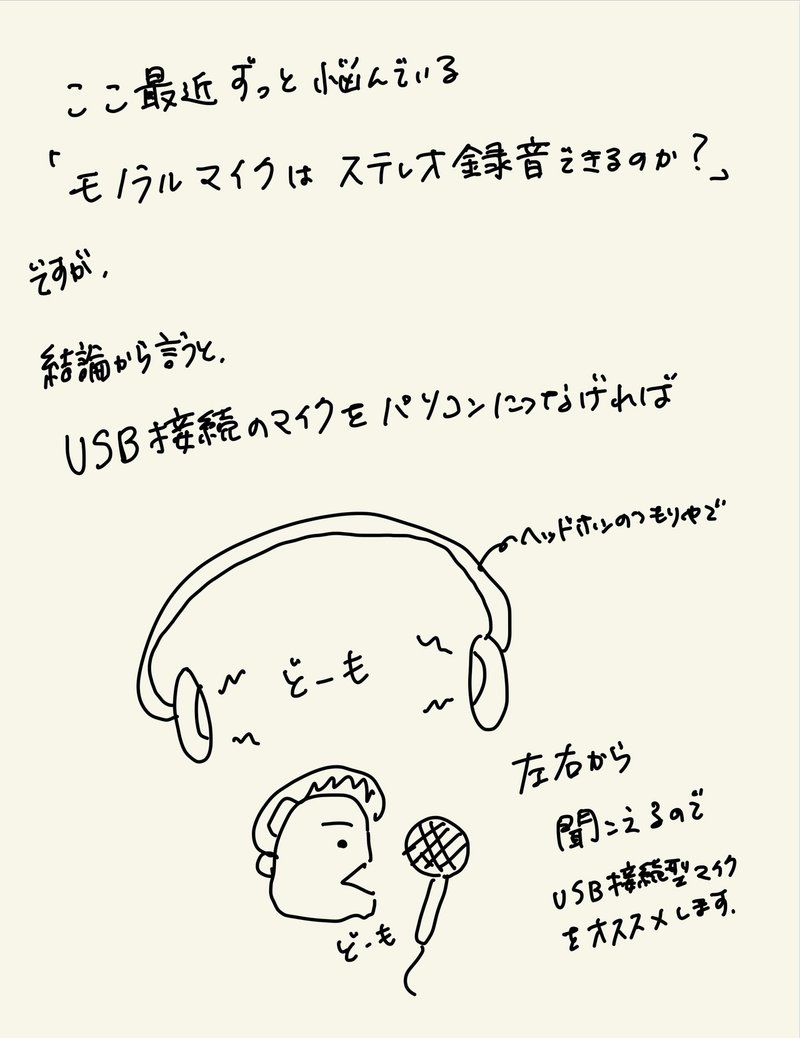 ここ最近ずっと悩んでいる
「モノラルマイクはステレオ録音できるのか?」
ですが、
結論から言うと、
USB接続のマイクをパソコンにつなげれば
ヘッドホンのつもりやで
どーも
左右から
聞こえるので
USB接続型マイク
をオススメします.
どーも